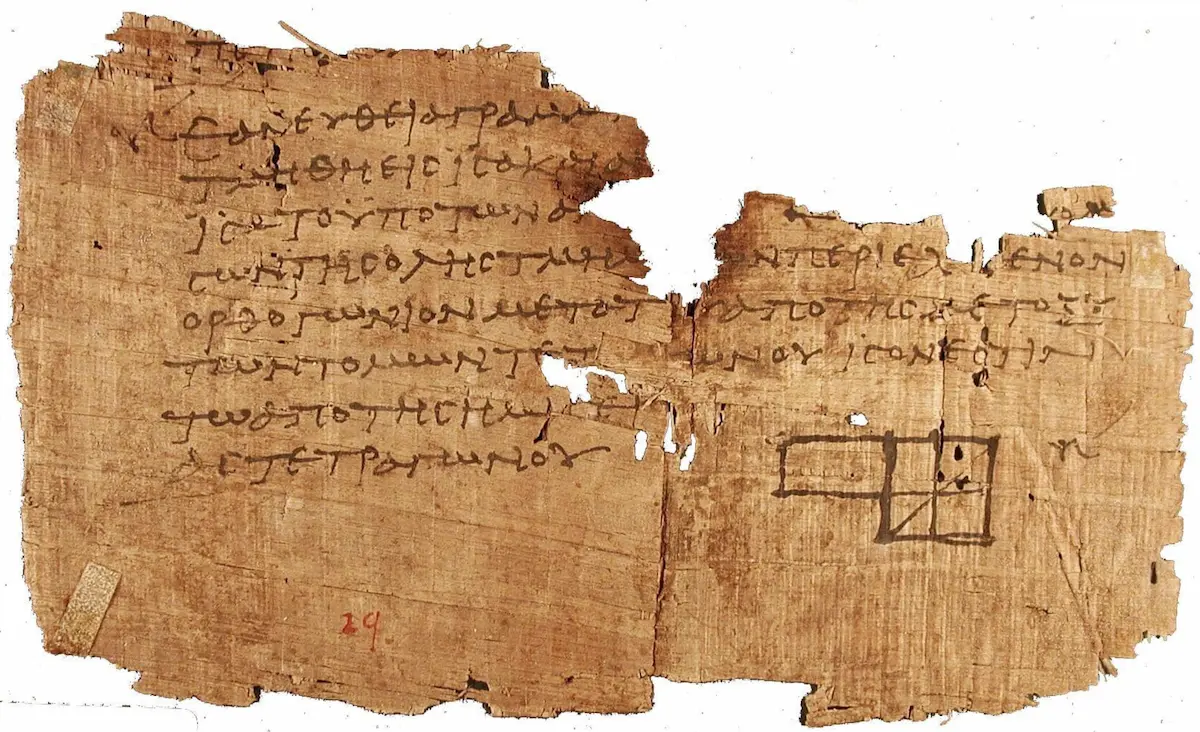 ΕΑΝ ΕΥΘΕΙΑ ΓΡΑΜΜ
ΤΜΗΘΗ ΕΙΣ ΙΣΑ ΚΑΙ ΑΝ
ΙΣΑ ΤΟ ΥΠΟ ΤΩΝ Α
ΣΩΝ ΤΗΣ ΟΛΗΣ ΤΜΗΜ ΩΝ ΠΕΡΙΕΧ ΕΝΟΝ
ΟΡΘΟΓΩΝΙΟΝ ΜΕΤΑ ΤΟΥ ΑΠΟ ΤΗΣ ΜΕΤΟΞΥ
ΤΩΝ ΤΟΜΩΝ ΤΕΤ ΩΝΟΥ ΙΣΟΝ ΕΣΤΙΝ
ΤΩ ΑΠΟ ΤΗΣ ΗΜΙΣΕΙ
ΑΣ ΤΕΤΡΑΓΩΝΟΥ
29